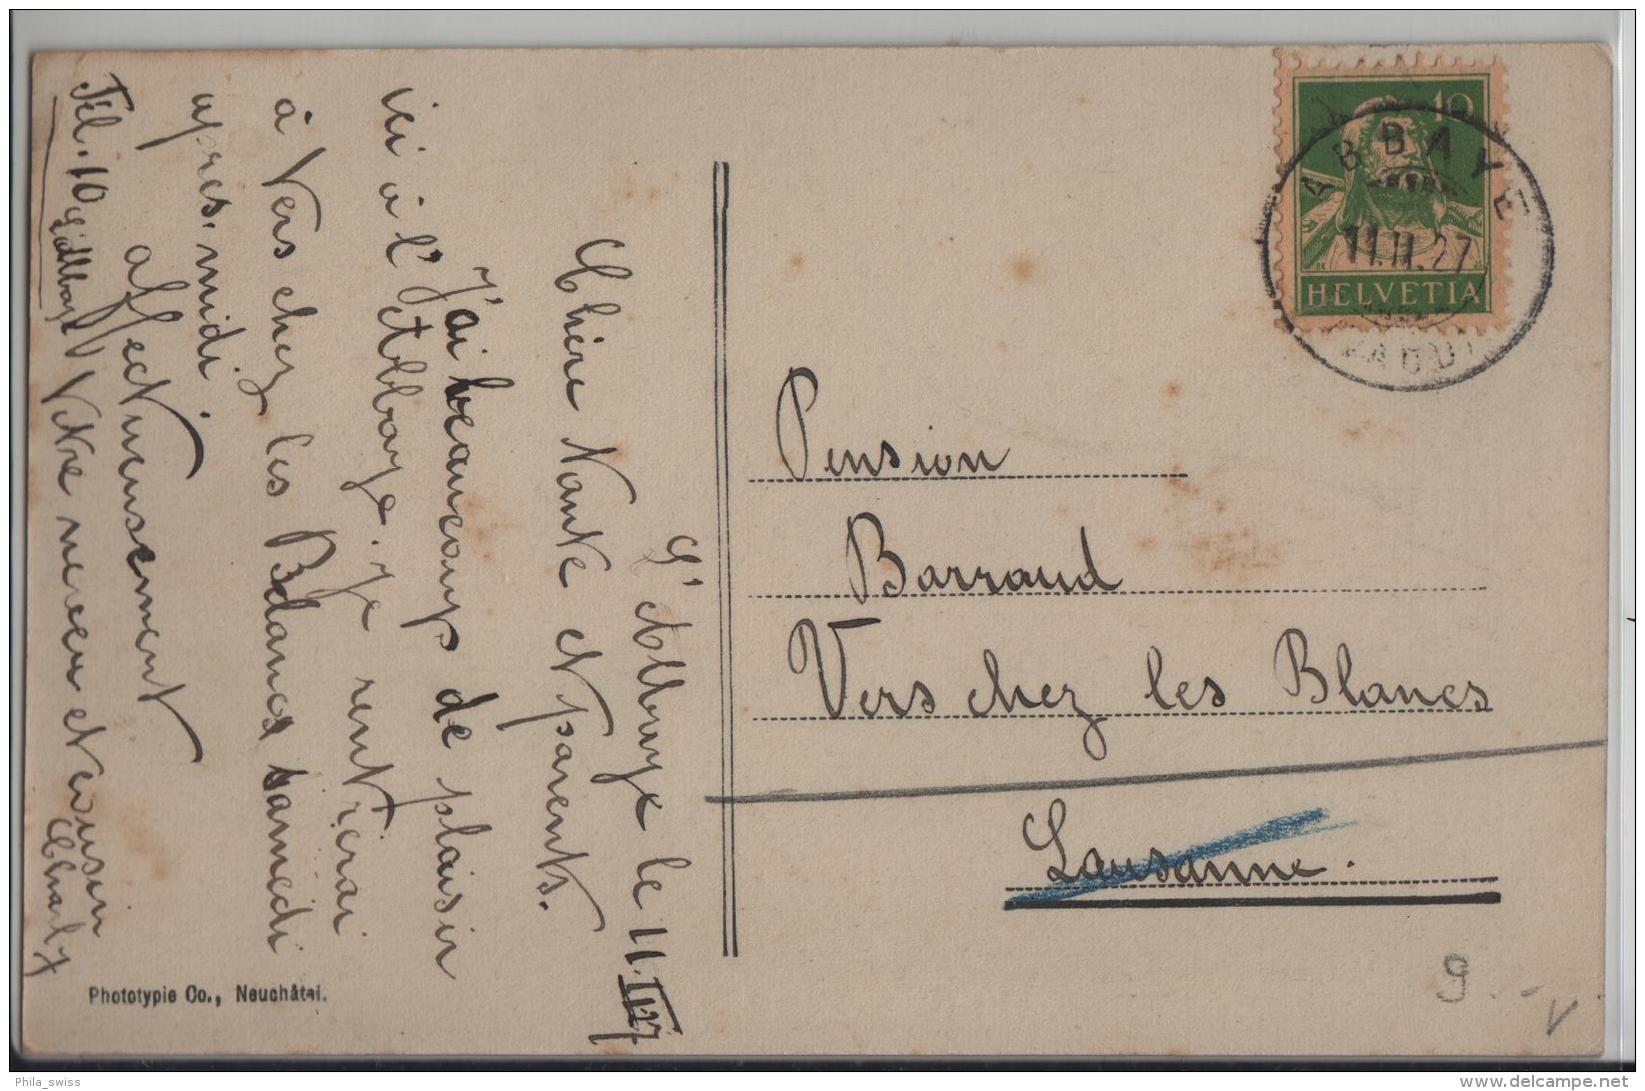 L'Abbaye le 11.II.27
Chère Tante et parents.
J'ai beaucoup de plaisir
ici à l'Abbaye. Je rentrerai
à Vers chez les Blancs samedi
après-midi.
affectueusement
Votre neveu et cousin
Charly
Tél. 10 L'Abbaye
Phototypie Co., Neuchâtel.
10
HELVETIA
ABBAYE
11.II.27
Pension
Barraud
Vers chez les Blancs
Lausanne.
9
Phila_swiss
delcampe.net